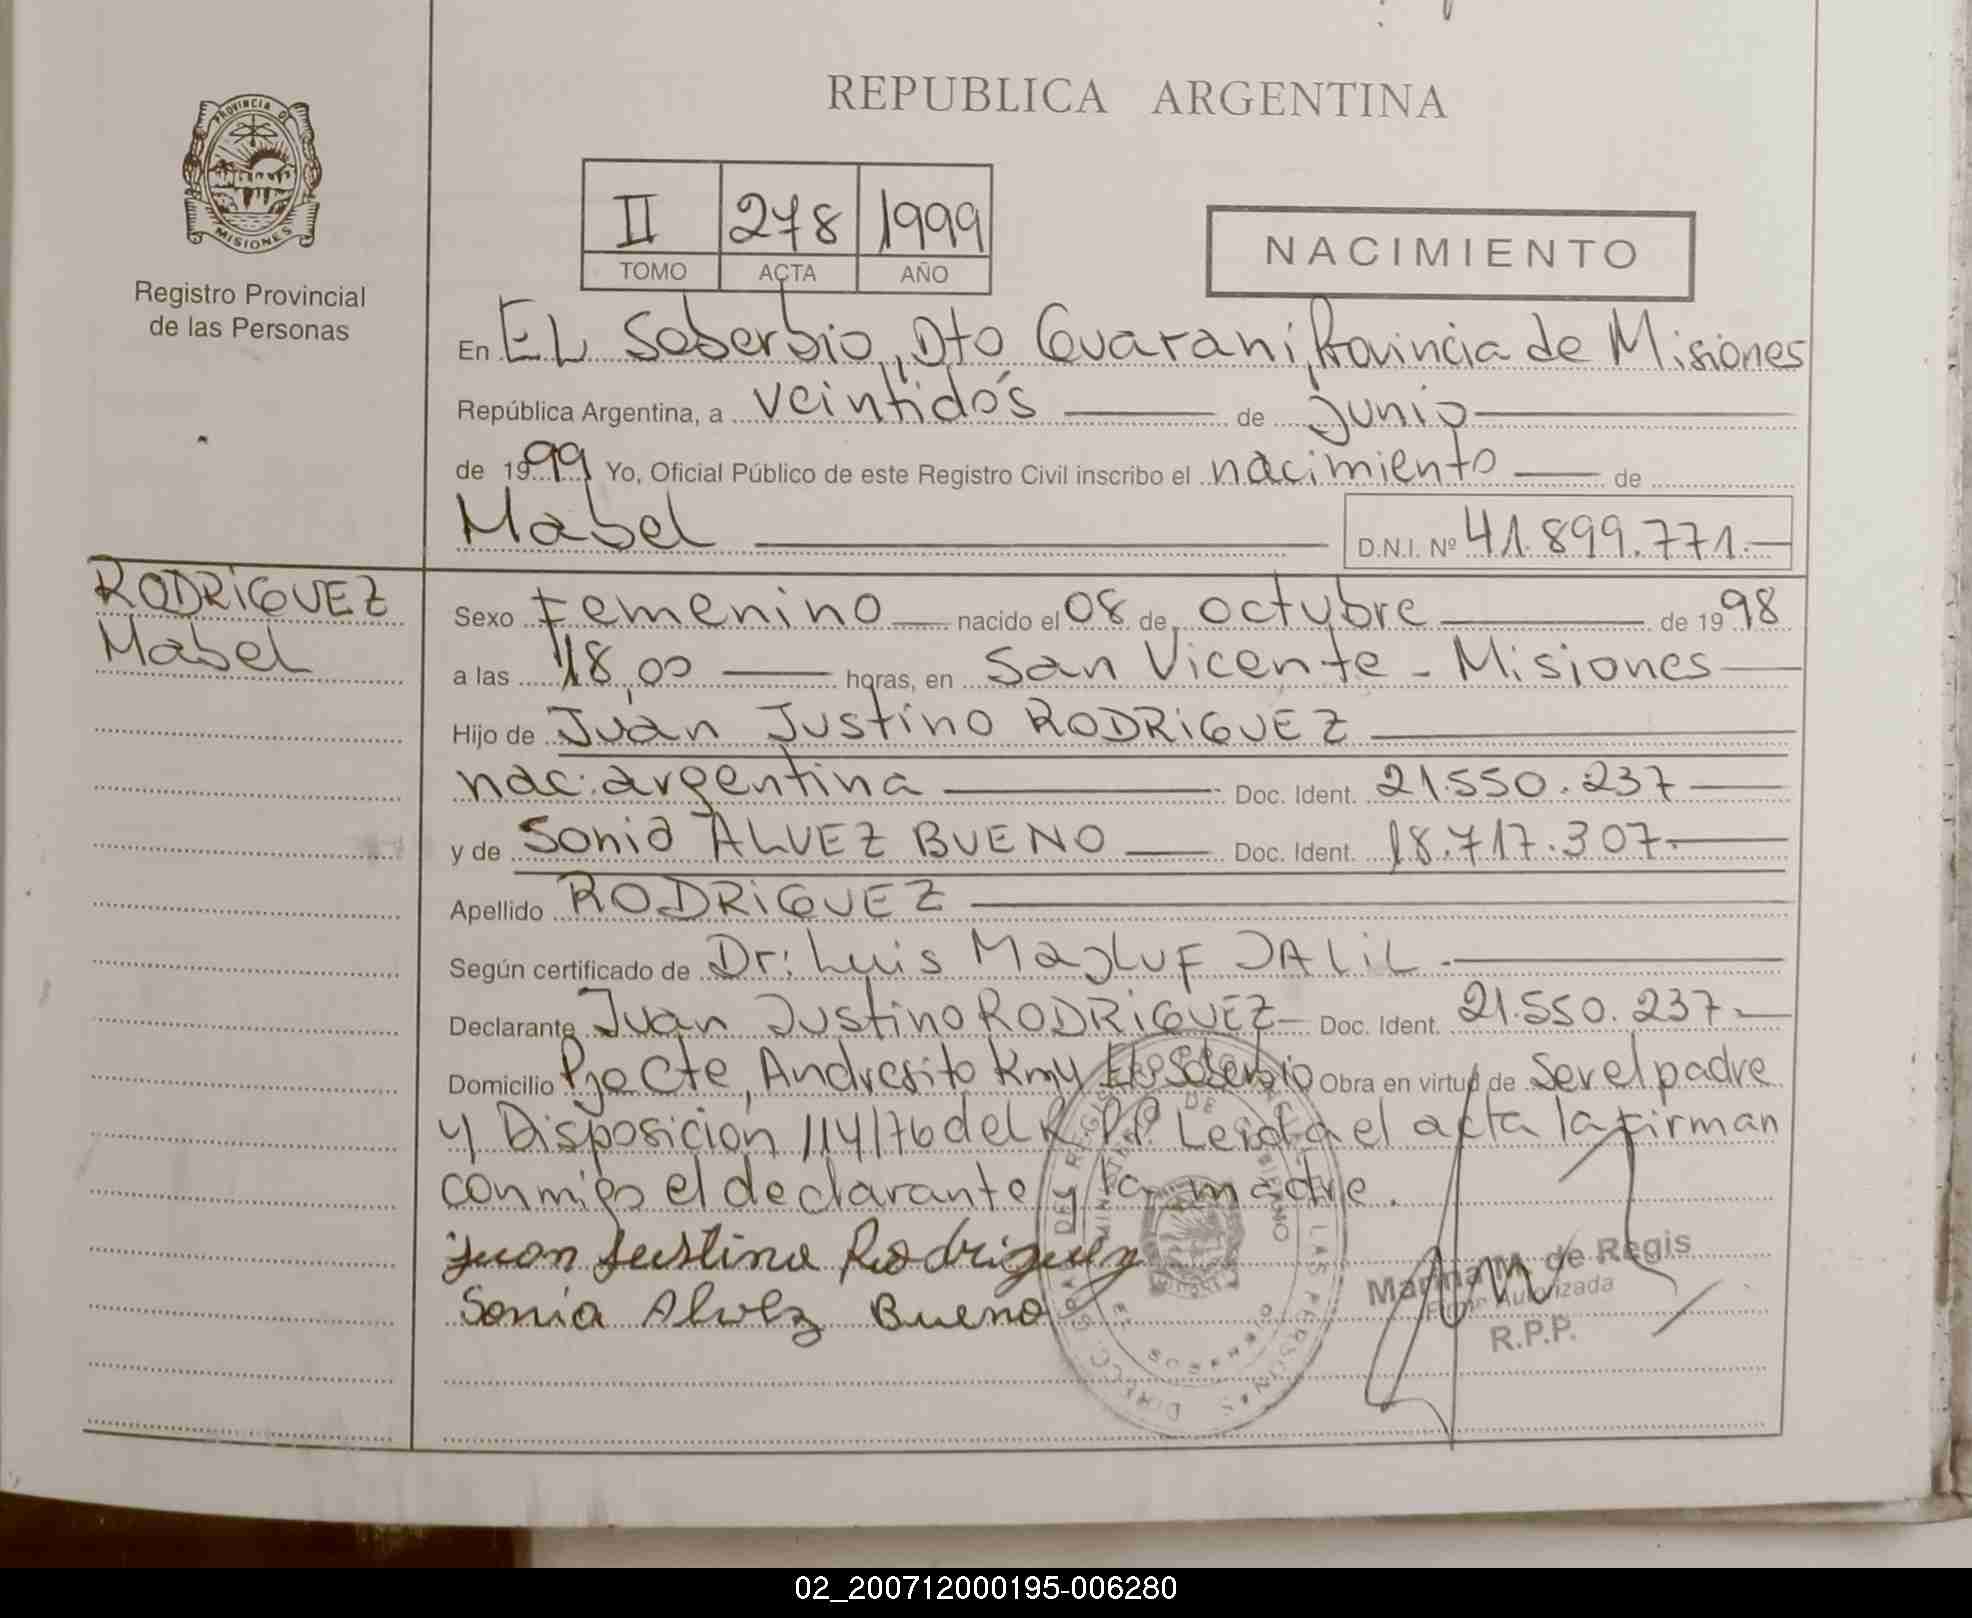 REPUBLICA ARGENTINA
PROVINCIA DE
MISIONES
Registro Provincial
de las Personas
II 278 1999
TOMO ACTA AÑO
NACIMIENTO
En EL Soberbio, Dto Guaraní, Provincia de Misiones
República Argentina, a veintidós de junio
de 1999 Yo, Oficial Público de este Registro Civil inscribo el nacimiento de
Mabel D.N.I. Nº 41.899.771.-
RODRiGUEZ
Mabel
Sexo Femenino nacido el 08 de octubre de 1998
a las 18,00 horas, en San Vicente - Misiones
Hijo de Juan Justino RODRiGUEZ
nac. argentina Doc. Ident. 21.550.237
y de Sonia ALVEZ BUENO Doc. Ident. 18.717.307.-
Apellido RODRiGUEZ
Según certificado de Dr: Luis MaJLUF JALiL.-
Declarante Juan Justino RODRiGUEZ Doc. Ident. 21.550.237.-
Domicilio Pje Cte, Andresito Km4 El Soberbio Obra en virtud de Ser el padre
y Disposición 114/76 del R.P.P. Leida el acta la firman
conmigo el declarante y la madre.
Juan Justino Rodriguez
Sonia Alvez Bueno
Marina M. de Regis
Firma Autorizada
R.P.P.
EL SOBERBIO
02_200712000195-006280